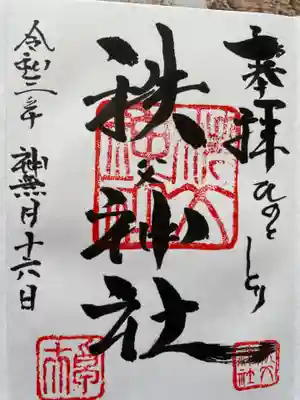 奉拝
ひのと とり
秩父神社
令和三年 神無月十六日